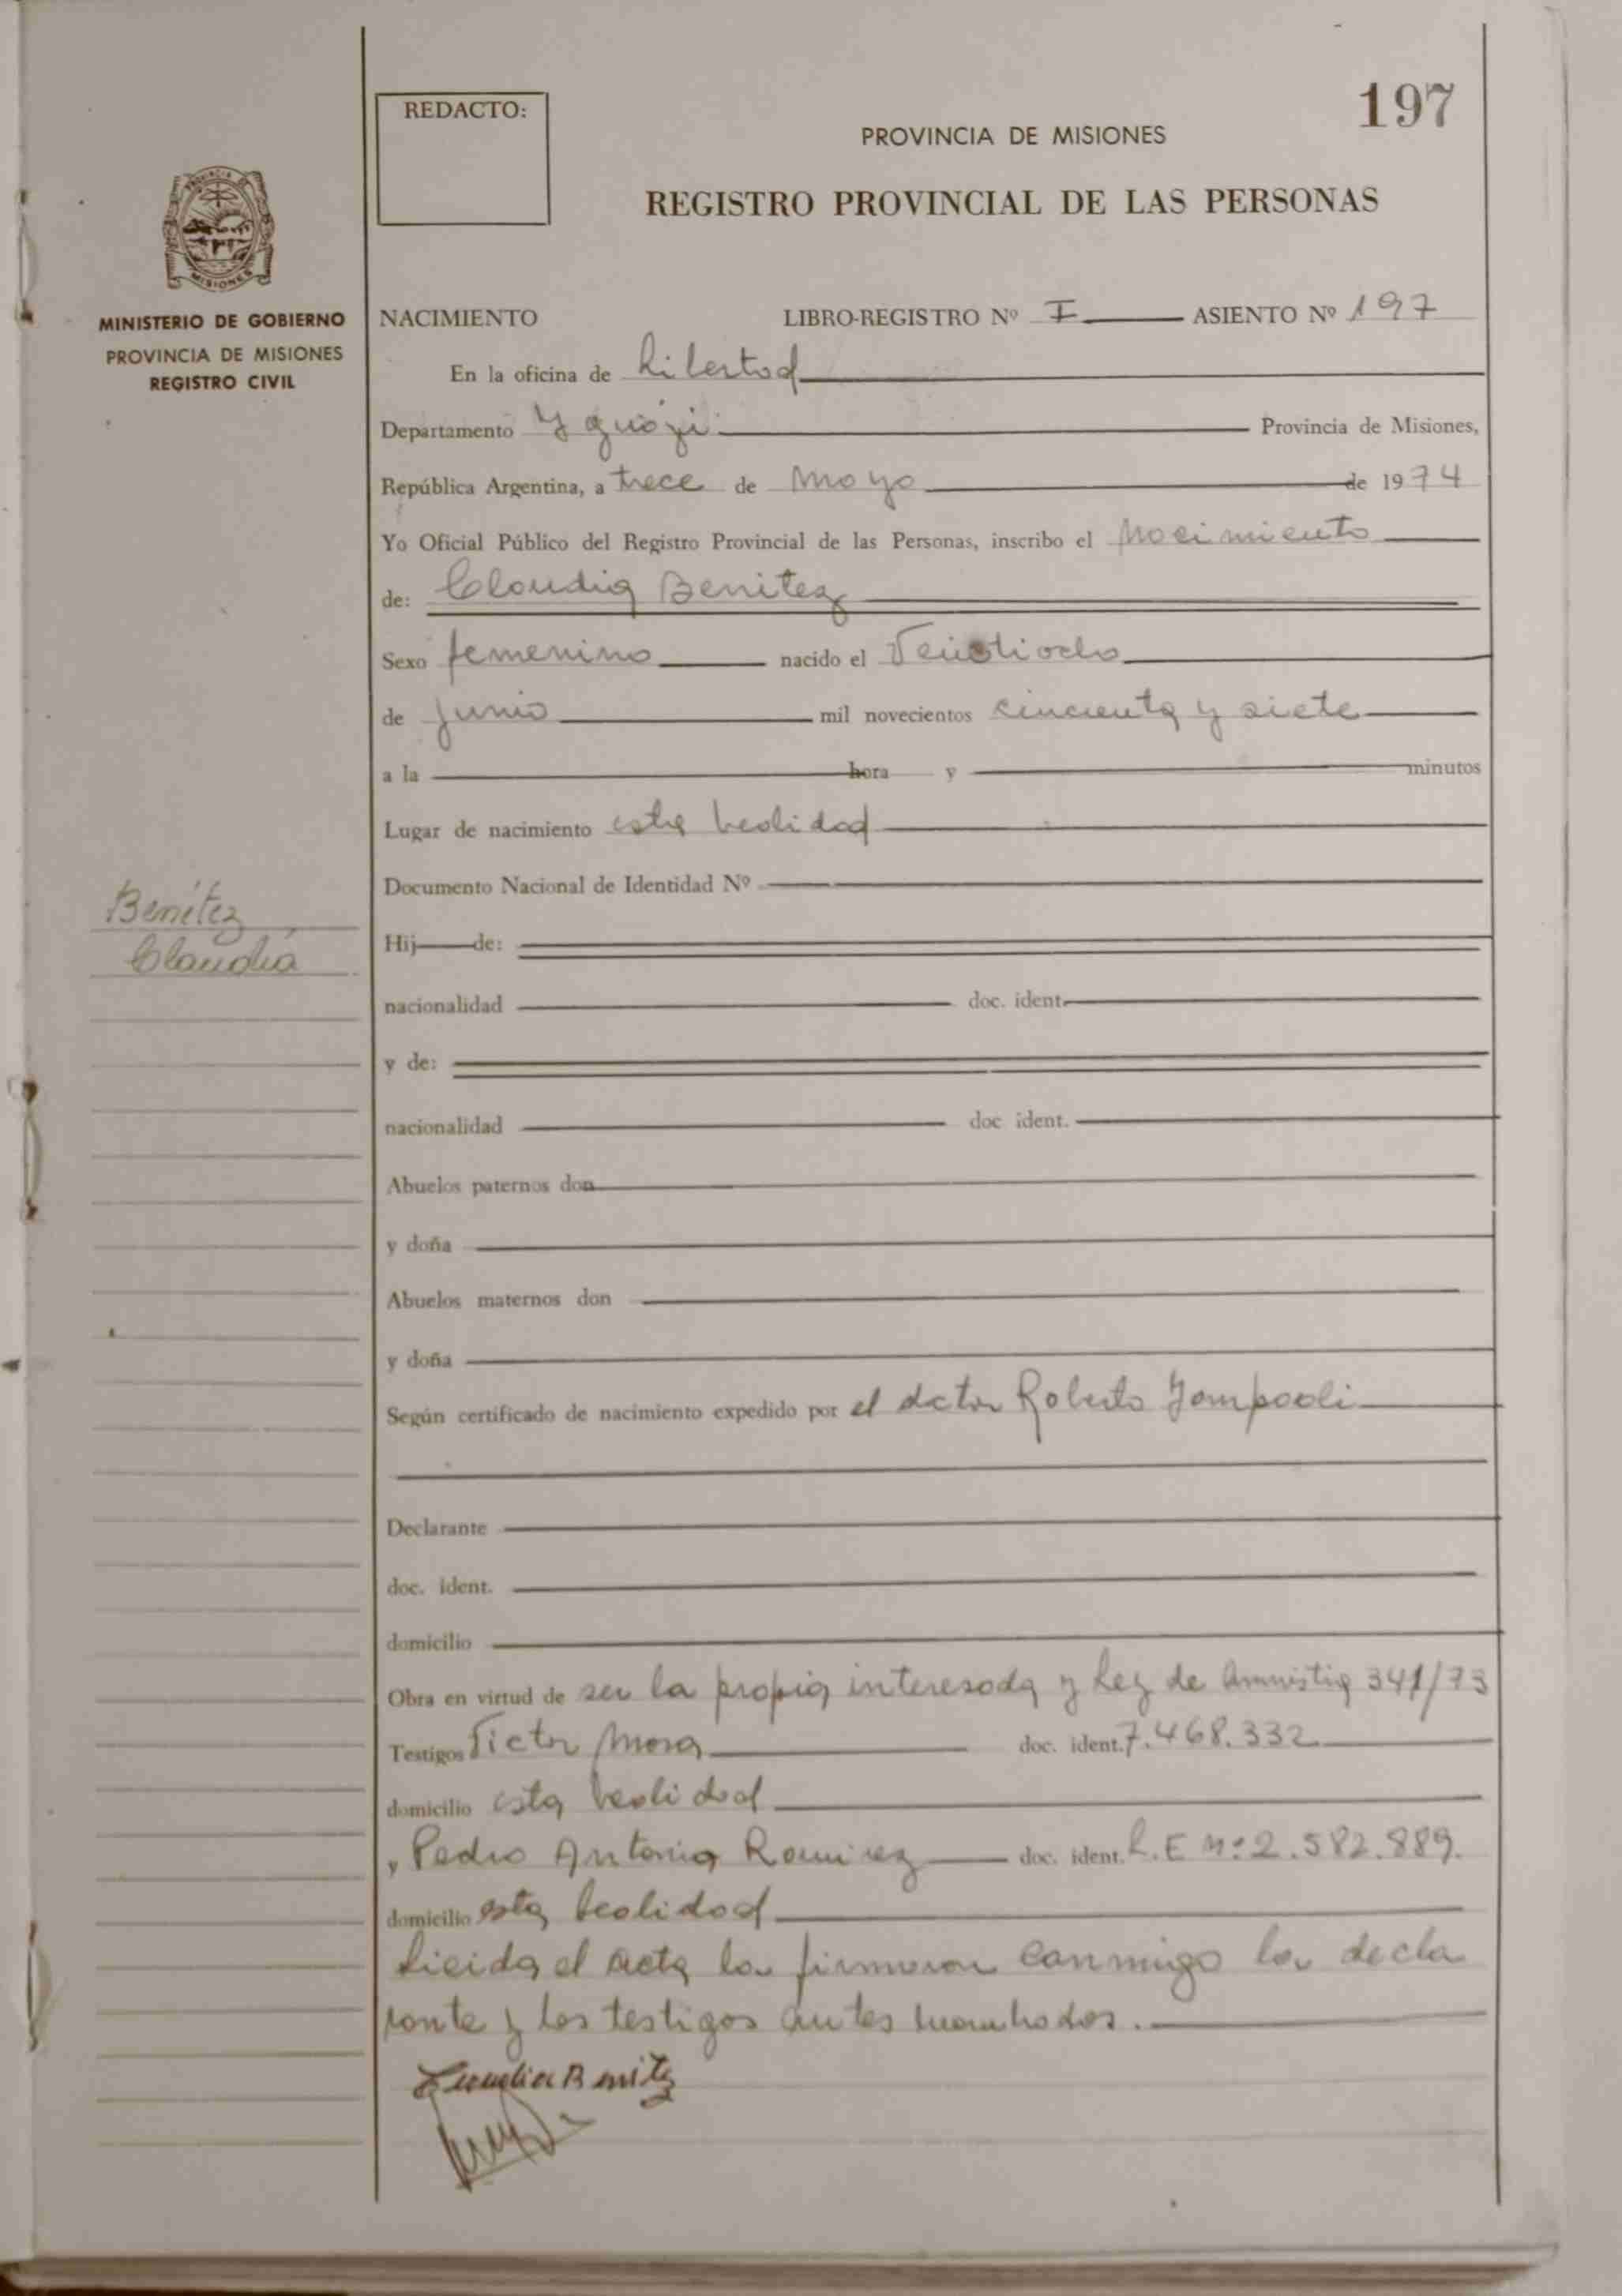 197
REDACTO:
PROVINCIA DE MISIONES
REGISTRO PROVINCIAL DE LAS PERSONAS
MISIONES
MINISTERIO DE GOBIERNO
PROVINCIA DE MISIONES
REGISTRO CIVIL
NACIMIENTO LIBRO-REGISTRO Nº I ASIENTO Nº 197
En la oficina de Libertad
Departamento Yguazú Provincia de Misiones,
República Argentina, a trece de Mayo de 1974
Yo Oficial Público del Registro Provincial de las Personas, inscribo el Nacimiento
de: Claudia Benitez
Sexo femenino nacido el Veintiocho
de Junio mil novecientos cincuenta y siete
a la hora y minutos
Lugar de nacimiento esta localidad
Documento Nacional de Identidad Nº
Benítez
Claudia
Hij de:
nacionalidad doc. ident.
y de:
nacionalidad doc ident.
Abuelos paternos don
y doña
Abuelos maternos don
y doña
Según certificado de nacimiento expedido por el doctor Roberto
Declarante
doc. ident.
domicilio
Obra en virtud de ser la propia interesada y Ley de Amnistia 341/73
Testigos Victor Mora doc. ident. 7.468.332
domicilio esta localidad
y Pedro Antonio Ramirez doc. ident. L.E Nº 2.582.889.
domicilio esta localidad
Leida el acta la firmaron conmigo la decla
rante y los testigos antes nombrados.
Benitez